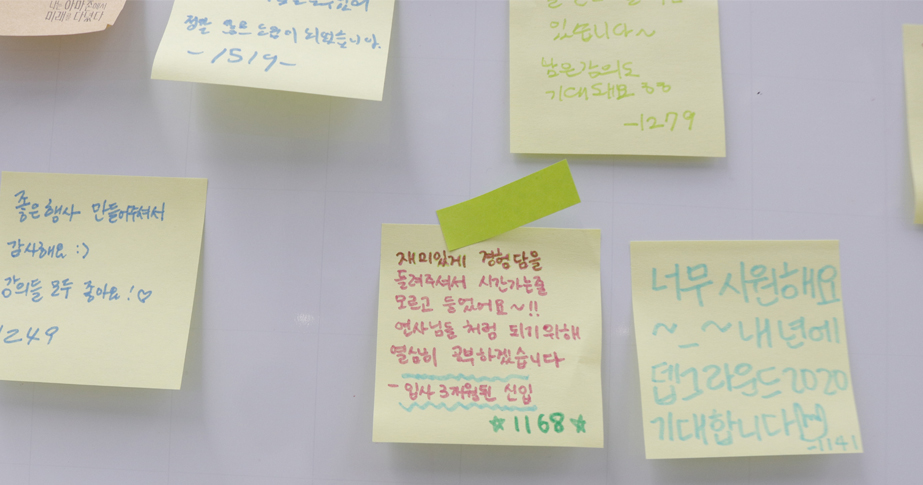 미래를 다녔다
정말 많은 도움이 되었습니다.
-1519-
있습니다~
남은 강의도
기대돼요 ㅎㅎ
-1279
좋은행사 만들어주셔서
감사해요 :)
강의들 모두 좋아요!♡
1249
재미있게 경험담을
들려주셔서 시간가는줄
모르고 들었어요~!!
연사님들 처럼 되기위해
열심히 공부하겠습니다
- 입사 3개월된 신입
☆1168☆
너무 시원해요
~_~ 내년에
뎁그라운드2020
기대합니다
-1141